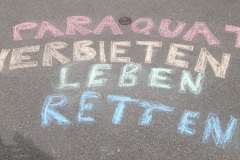 PARAQUAT
VERBIETEN
LEBEN
RETTEN